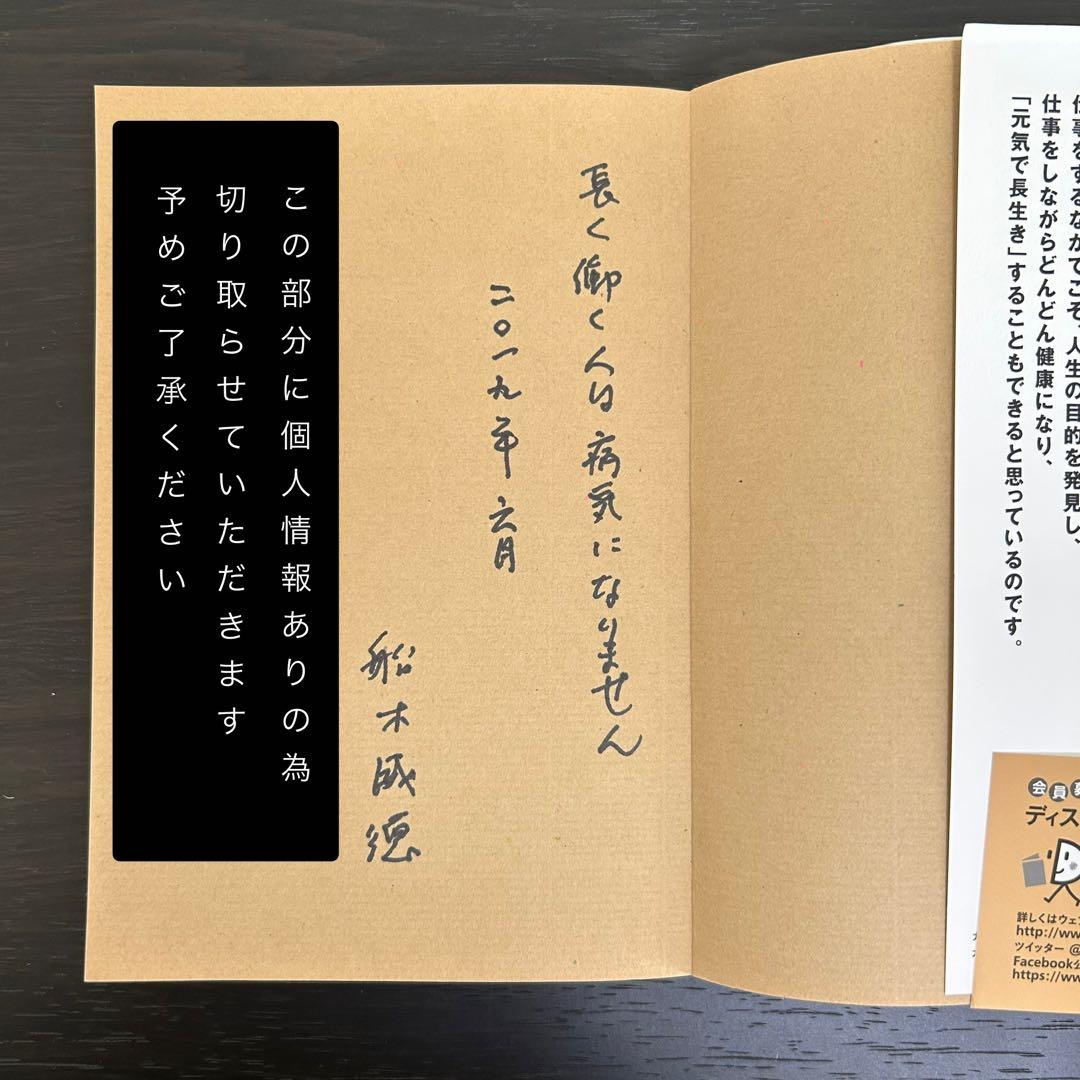 仕事をするなかでこそ、人生の目的を発見し、
仕事をしながらどんどん健康になり、
「元気で長生き」することもできると思っているのです。
長く働く人は病気になりません
二〇一九年六月
船木成徳
この部分に個人情報ありの為
切り取らせていただきます
予めご了承ください
会員
ディス
詳しくはウェブ
http://ww
ツイッター @
Facebook公
https://ww